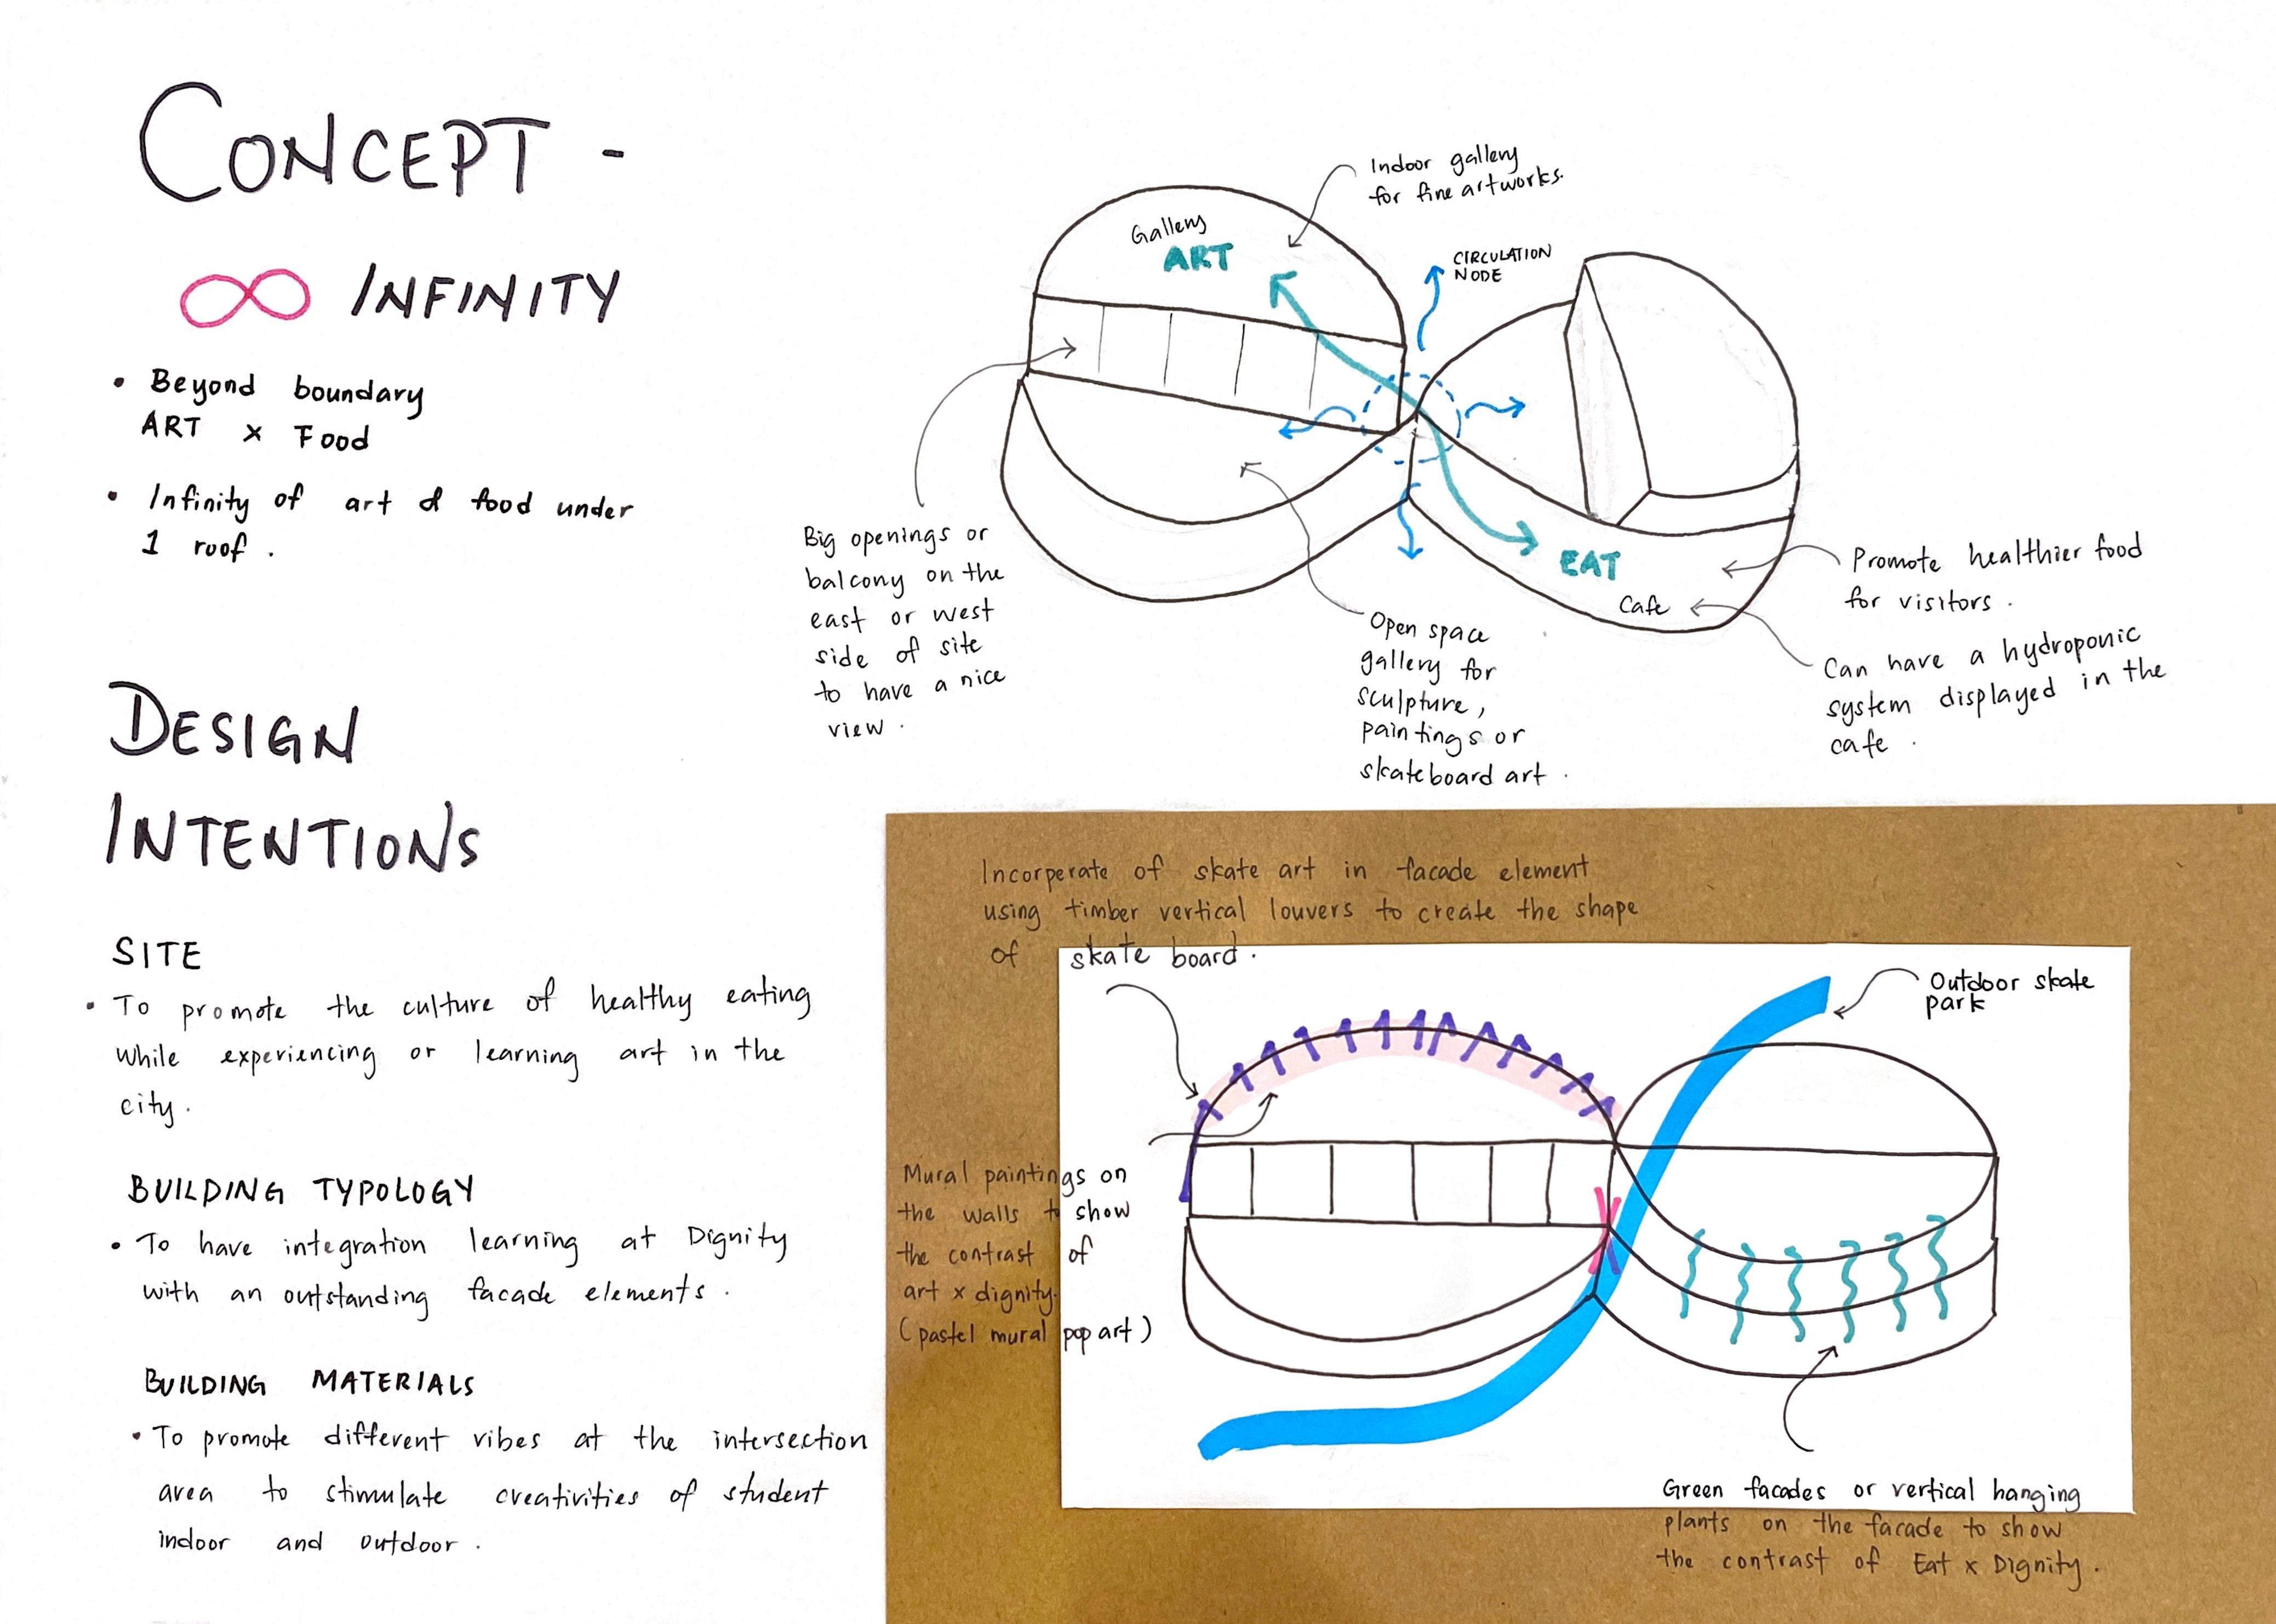 CONCEPT -
∞ INFINITY
• Beyond boundary
ART x Food
• Infinity of art & food under
1 roof.
DESIGN
INTENTIONS
SITE
• To promote the culture of healthy eating
while experiencing or learning art in the
city.
BUILDING TYPOLOGY
• To have integration learning at Dignity
with an outstanding facade elements.
BUILDING MATERIALS
• To promote different vibes at the intersection
area to stimulate creativities of student
indoor and outdoor.
Indoor gallery
for fine artworks.
Gallery
ART
CIRCULATION
NODE
Big openings or
balcony on the
east or west
side of site
to have a nice
view.
Open space
gallery for
sculpture,
paintings or
skateboard art.
EAT
Cafe
Promote healthier food
for visitors.
Can have a hydroponic
system displayed in the
cafe.
Incorperate of skate art in facade element
using timber vertical louvers to create the shape
of skate board.
Outdoor skate
park
Mural paintings on
the walls to show
the contrast of
art x dignity.
(pastel mural pop art)
Green facades or vertical hanging
plants on the facade to show
the contrast of Eat x Dignity.